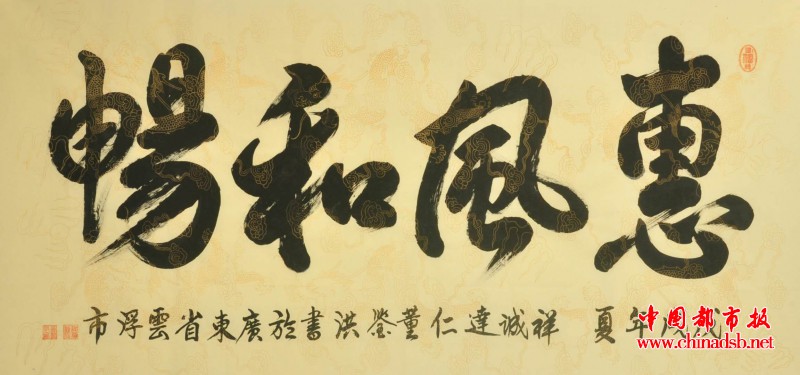 惠風和暢
年夏 祥誠達仁 董洪書於廣東省雲浮市
中国都市报
www.chinadsb.net